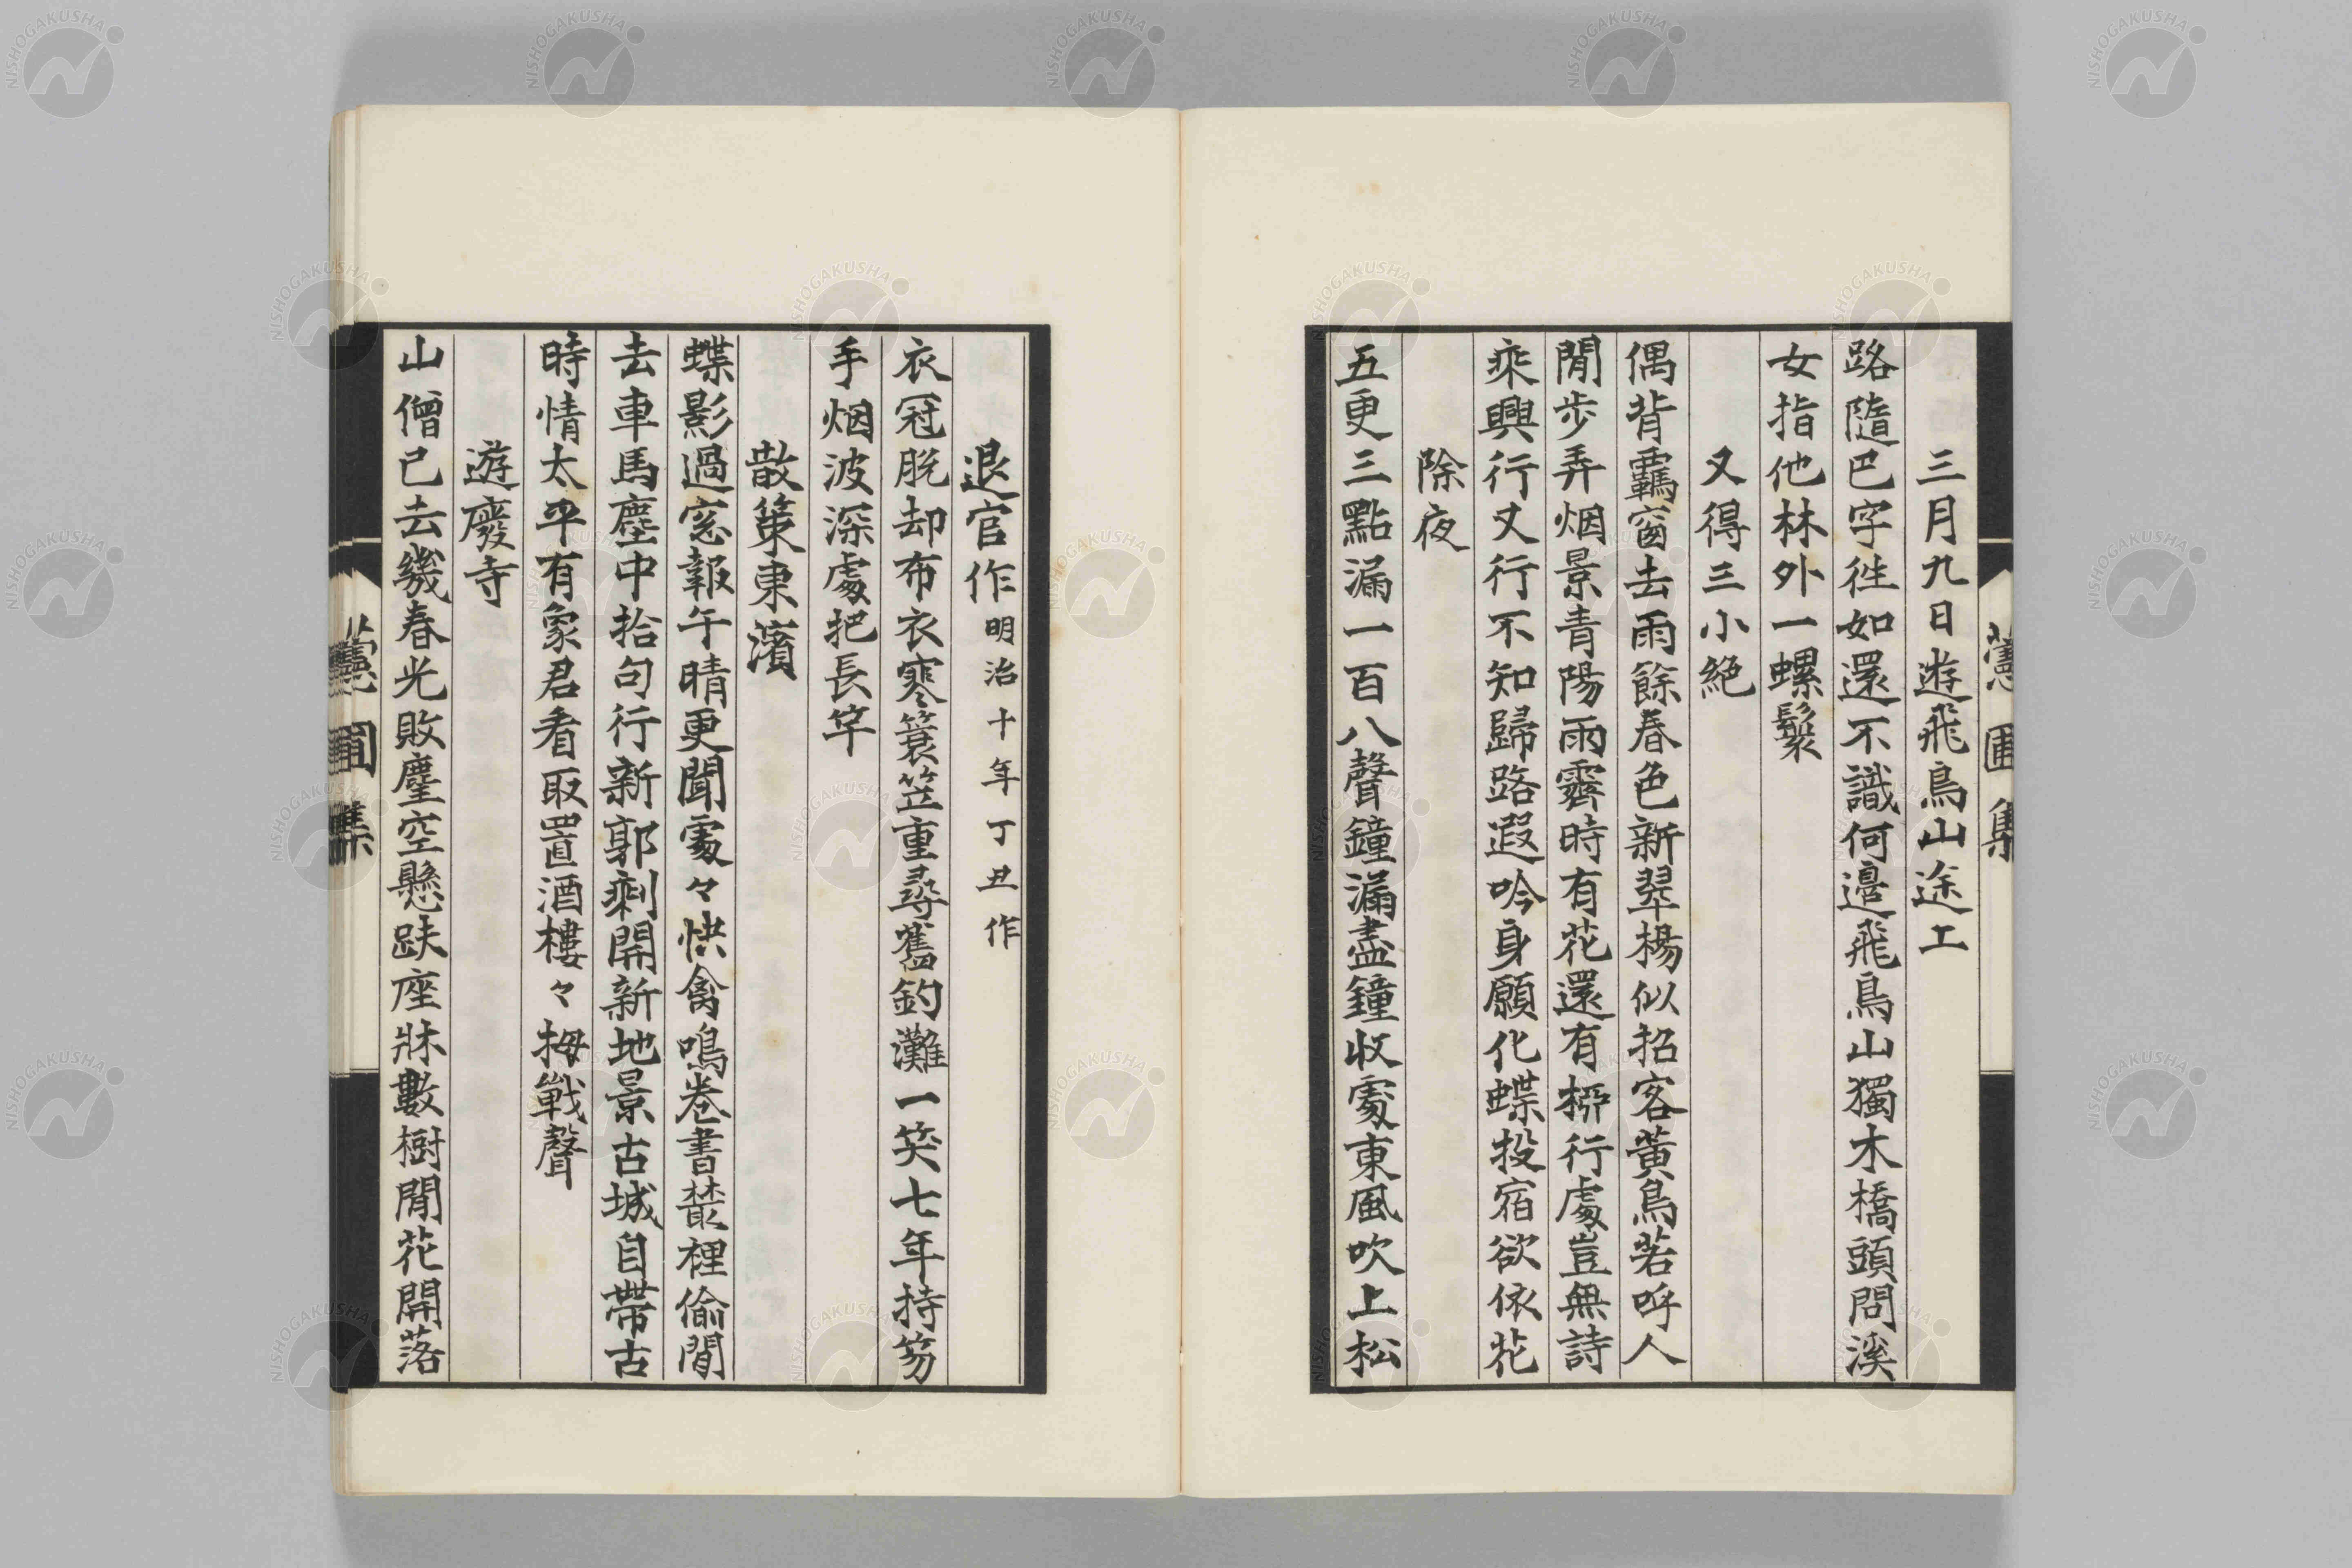 三月九日遊飛鳥山途上
路隨巴字徃如還不識何邉飛鳥山獨木橋頭問溪
女指他林外一螺鬟
又得三小絶
偶背羈窗去雨餘春色新翠楊似招客黄鳥若呼人
閒歩弄烟景青陽雨霽時有花還有桺行處豈無詩
乘興行又行不知歸路遐吟身願化蝶投宿欲依花
除夜
五更三點漏一百八聲鐘漏盡鐘收處東風吹上松
蕙圃集
退官作 明治十年丁丑作
衣冠脱却布衣寒簑笠重尋舊釣灘一笑七年持笏
手烟波深處把長竿
散策東濱
蝶影過窓報午晴更聞處々快禽鳴巻書藂裡偷閒
去車馬塵中拾句行新郭剩開新地景古城自帶古
時情太平有象君看取置酒樓々拇戰聲
遊廢寺
山僧已去幾春光敗塵空懸趺座牀數樹閒花開落
蕙圃集
NISHOGAKUSHA